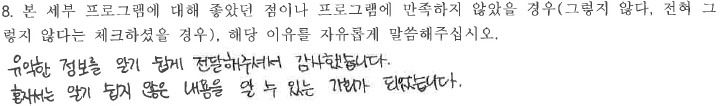 8. 본 세부 프로그램에 대해 좋았던 점이나 프로그램에 만족하지 않았을 경우(그렇지 않다, 전혀 그
렇지 않다는 체크하셨을 경우), 해당 이유를 자유롭게 말씀해주십시오.
유익한 정보를 알기 쉽게 전달해주셔서 감사했습니다.
혼자서는 알기 쉽지 않은 내용을 알 수 있는 기회가 되었습니다.